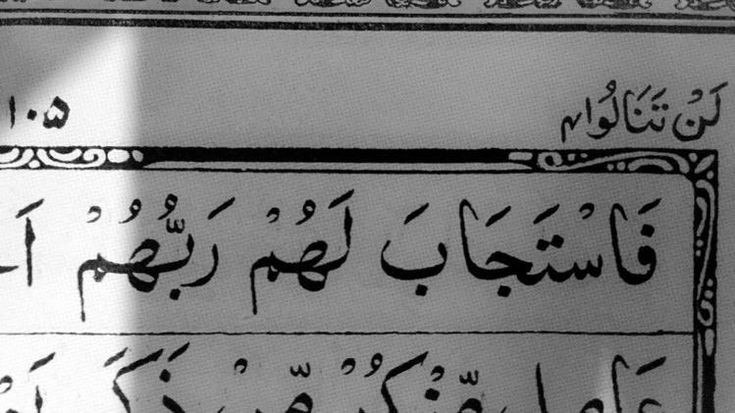 لَنْ تَنَالُوا۴
۱۰۵
فَاسْتَجَابَ لَهُمْ رَبُّهُمْ
عَامِلٍ مِّنْكُمْ مِّنْ ذَكَرٍ